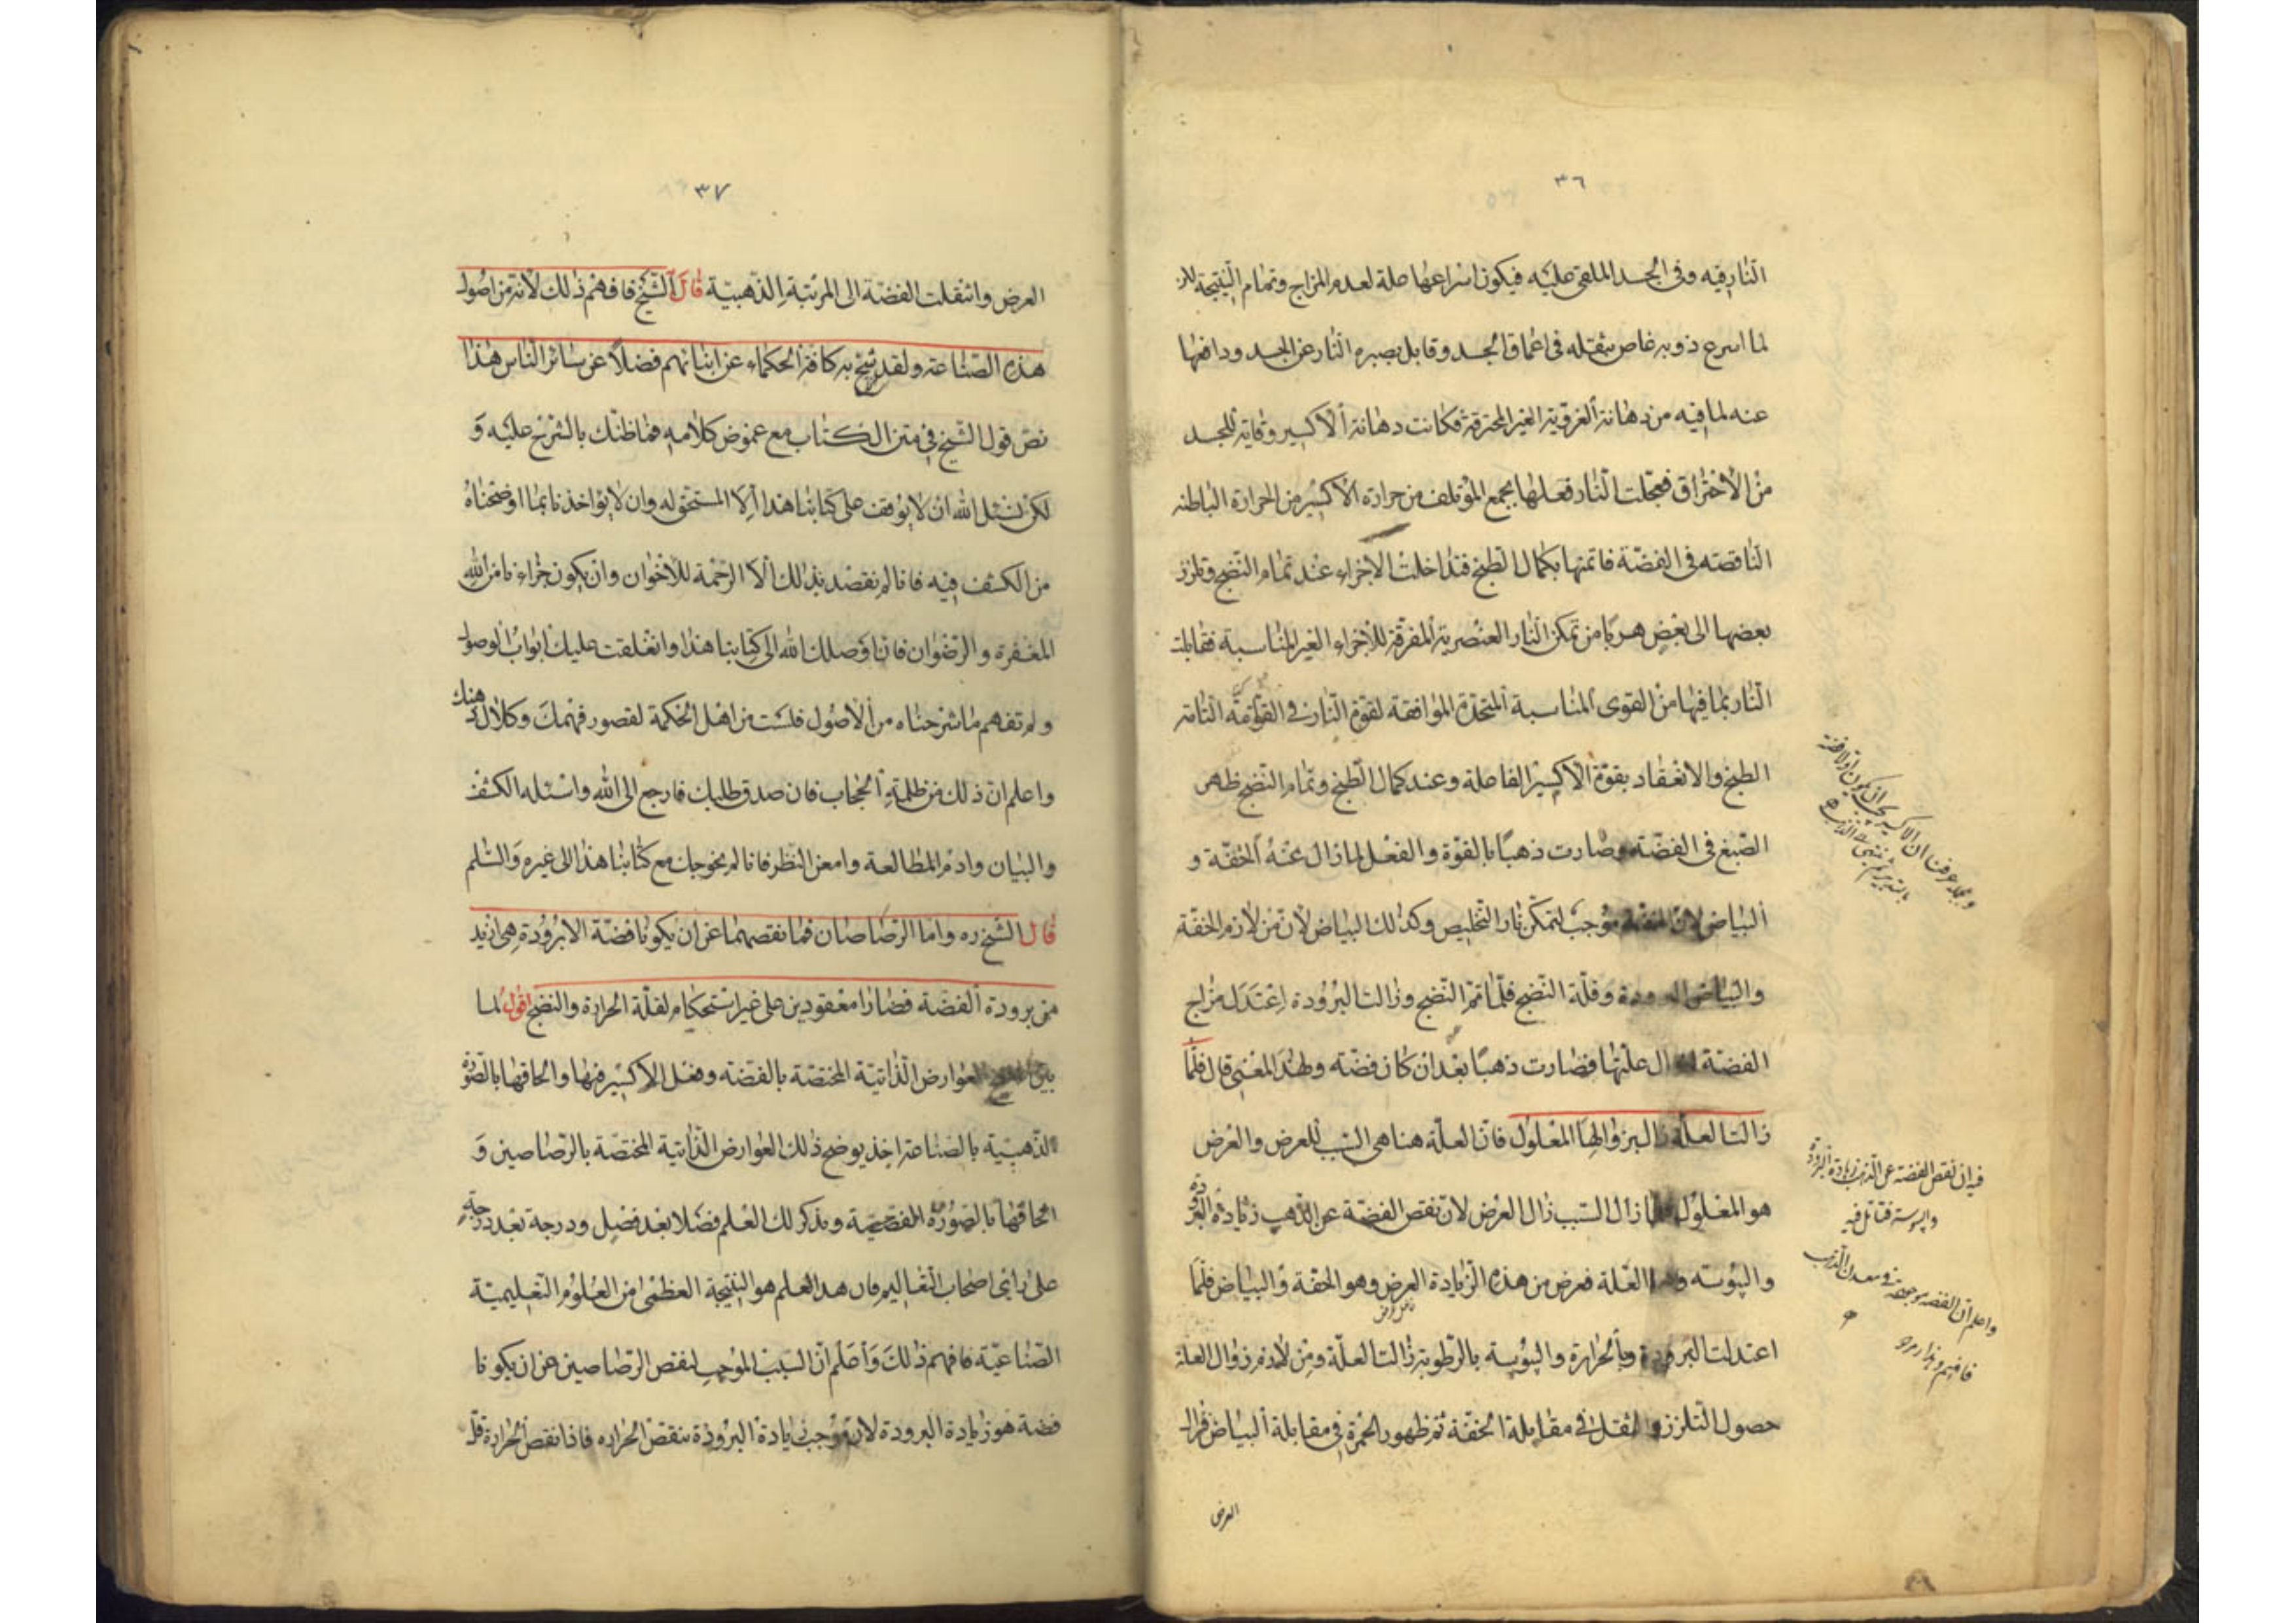 ٣٦
النار فيه وفى الجسد الملقى عليه فيكون اسراعها صلة لعدم المزاج وتمام النتيجة
لما اسرع ذوبه غاص بثقله فى اعماق الجسد وقابل بصبره النار عن الجسد ودافعها
عنه لما فيه من دهانة الغروية الغير المحترقة فكانت دهانة الاكسير وقاية للجسد
من الاحتراق فعجلت النار فعلها بجمع المؤتلف من حرارة الاكسير من الحرارة الباطنه
الناقصته فى الفضة فاتمتها بكمال الطبخ فتداخلت الاجزاء عند تمام النضج وتلزز
بعضها الى بعض هربا من تمكن النار العنصرية المفرقة للاجزاء الغير المناسبة فقابلت
النار بما فيها من القوى المناسبة المتحدة الموافقة لقوة النار فى التامه
الطبخ والانعقاد بقوة الاكسير الفاعلة وعند كمال الطبخ وتمام النضج ظهر
الصبغ فى الفضة وصارت ذهبا بالقوة والفعل لما زال عنه الخفة و
البياض لان الخفة موجب لتمكن نار التخليص وكذلك البياض لان من لازم الخفة
والبياض البرودة وقلة النضج فلما تم النضج وزالت البرودة اعتدل مزاج
الفضة عليها فصارت ذهبا بعد ان كان فضة ولهذا المعنى قال فلما
زالت العلة زال بزوالها المعلول فان العلة هنا هى السبب للعرض والعرض
هو المعلول فلما زال السبب زال العرض لان نقص الفضة عن الذهب زيادة البرودة
واليبوسته العلة فعرض من هذه الزيادة العرض وهو الخفة والبياض فلما
اعتدلت البرودة بالحرارة واليبوسة بالرطوبة زالت العلة ومن لازم زوال العلة
حصول التلزز والثقل فى مقابلة الخفة ثم ظهور الحمرة فى مقابلة البياض فزال
العرض
فيه ان نقص الفضة عن الذهب زيادة البرودة
واليبوسة فتأمل فيه
واعلم ان الفضه موجودة فى معدن الذهب
٣٧
العرض وانتقلت الفضة الى المرتبة الذهبية قال الشيخ فافهم ذلك لانه من اصول
هذه الصناعة ولقد به كافة الحكماء عن ابنائهم فضلا عن سائر الناس هذا
نص قول الشيخ فى متن الكتاب مع غموض كلامه فما ظنك بالشرح عليه و
لكن نسئل الله ان لا يوقف على كتابنا هذا الا المستحق له وان لا يؤاخذنا بما اوضحناه
من الكشف فيه فانا لم نقصد بذلك الا الرحمة للاخوان وان يكون جزاءنا من الله
المغفرة والرضوان فان اوصلك الله الى كتابنا هذا وانغلقت عليك ابواب الوصول
ولم تفهم ما شرحناه من الاصول فلست من اهل الحكمة لقصور فهمك وكلال ذهنك
واعلم ان ذلك من ظلمة الحجاب فان صدق طلبك فارجع الى الله واسئله الكشف
والبيان وادم المطالعة وامعن النظر فانا لم نحوجك مع كتابنا هذا الى غيره والسلم
قال الشيخ ره واما الرصاصان فما نقصهما عن ان يكونا فضة الا برودة هى ازيد
من برودة الفضة فصارا معقودين على غير استحكام لقلة الحرارة والنضج اقول لما
بين العوارض الذاتية المختصة بالفضه وفعل الاكسير فيها والحاقها بالصورة
الذهبية بالصناعة اخذ يوضح ذلك العوارض الذاتية المختصة بالرصاصين و
الحاقها بالصورة الفضية ويذكر لك العلم فضلا بعد فضل ودرجة بعد درجة
على رأى اصحاب التعاليم فان هذا العلم هو النتيجة العظمى من العلوم التعليمية
الصناعية فافهم ذلك واعلم ان السبب الموجب لنقص الرصاصين عن ان يكونا
فضة هو زيادة البرودة لان موجب زيادة البرودة ينقص الحراره فاذا نقص الحرارة قل